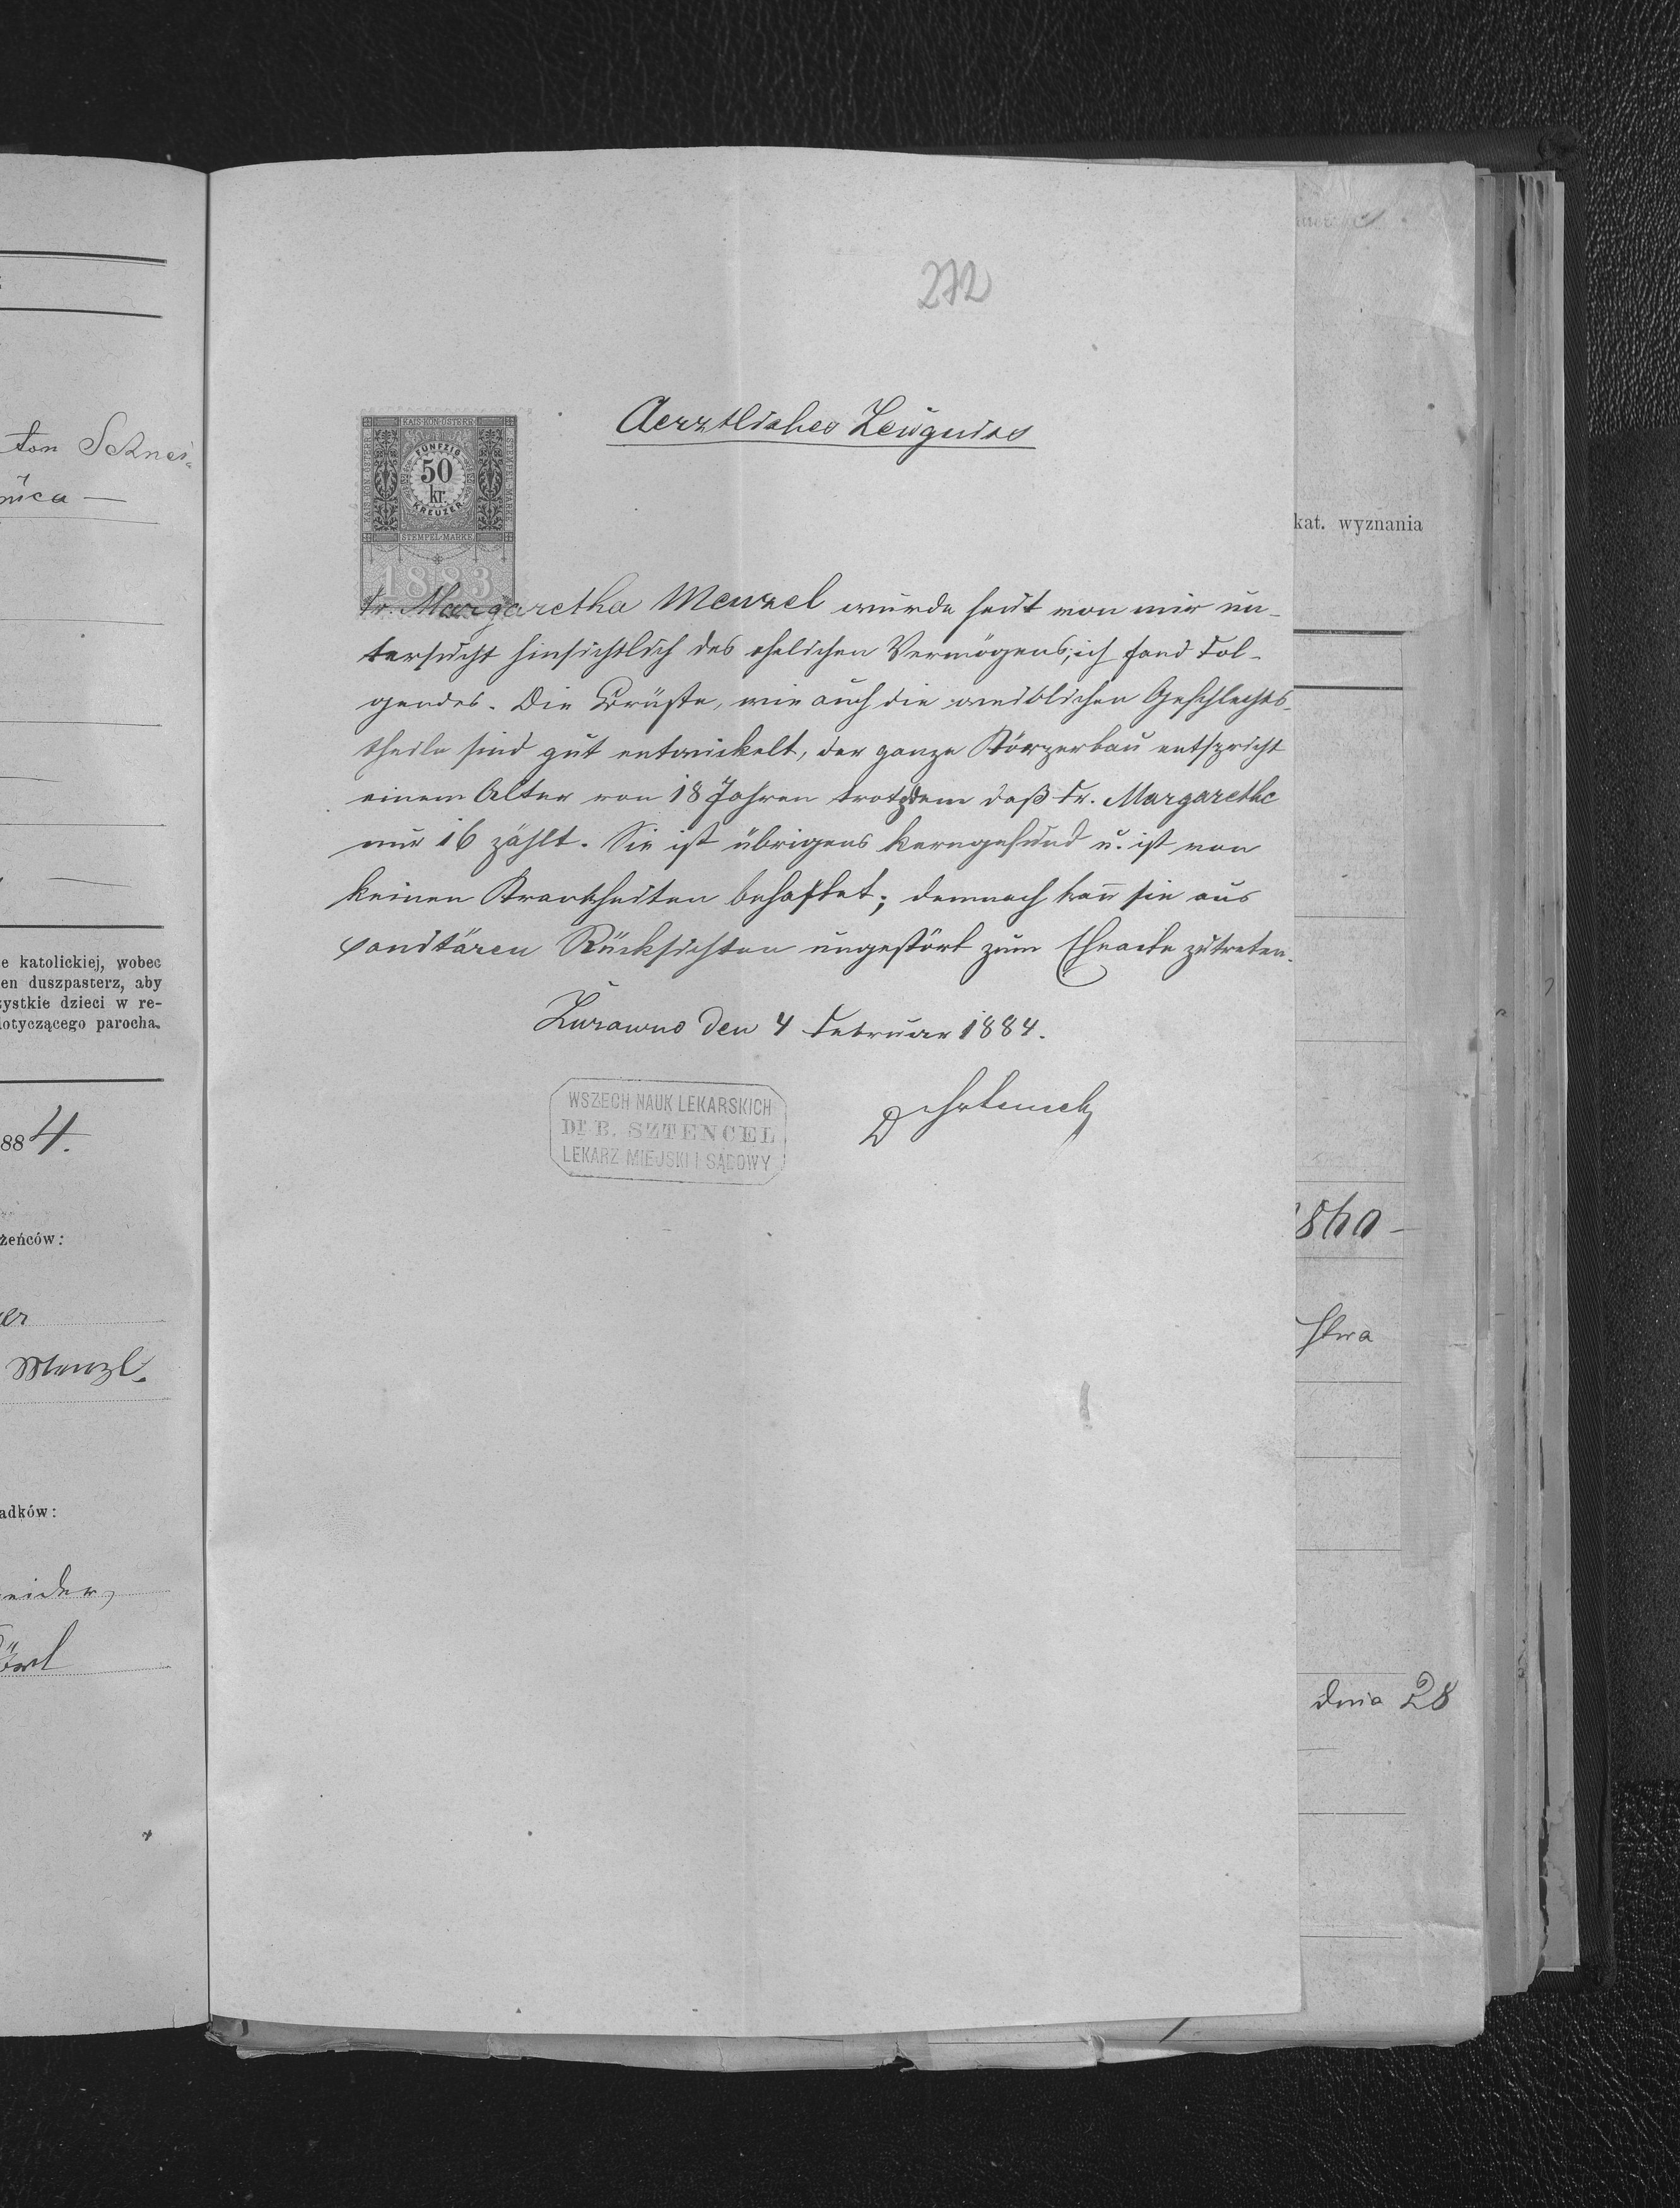 272
Aerztliches Zeugniss
KAIS·KÖN·ÖSTERR·
FÜNFZIG
50
kr.
KREUZER
STEMPEL-MARKE
1883
Fr. Margaretha Menzel wurde heut von mir un-
tersucht hinsichtlich des ehelichen Vermögens; ich fand Fol-
gendes. Die Brüste, wie auch die weiblichen Geschlechts-
theile sind gut entwickelt, der ganze Körperbau entspricht
einem Alter von 18 Jahren trotzdem daß Fr. Margarethe
nur 16 zählt. Sie ist übrigens kerngesund u. ist von
keinen Krankheiten behaftet; demnach kann sie aus
sanitären Rücksichten ungestört zum Eheacte zutreten.
Żurawno den 4 Februar 1884.
WSZECH NAUK LEKARSKICH
Dr B. SZTENCEL
LEKARZ MIEJSKI I SĄDOWY
ton Schnei-
nica
e katolickiej, wobec
en duszpasterz, aby
zystkie dzieci w re-
dotyczącego parocha.
884.
żeńców:
er
Menzl.
adków:
neider,
kat. wyznania
dnia 28